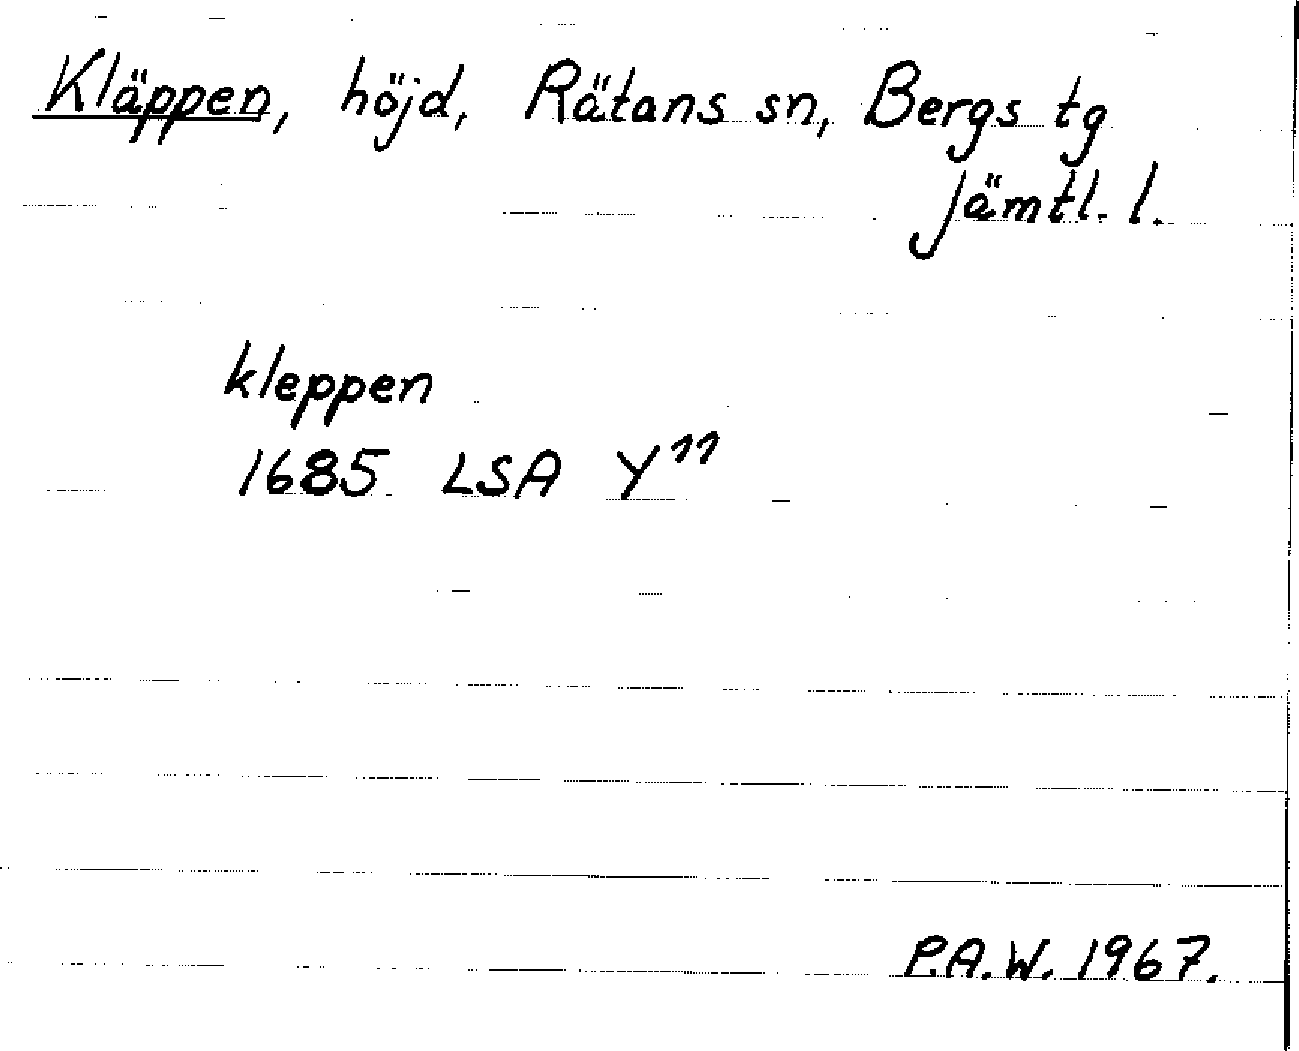 Kläppen, höjd, Rätans sn, Bergs tg
Jämtl. l.
kleppen
1685 LSA Y¹¹
P.A.W. 1967.